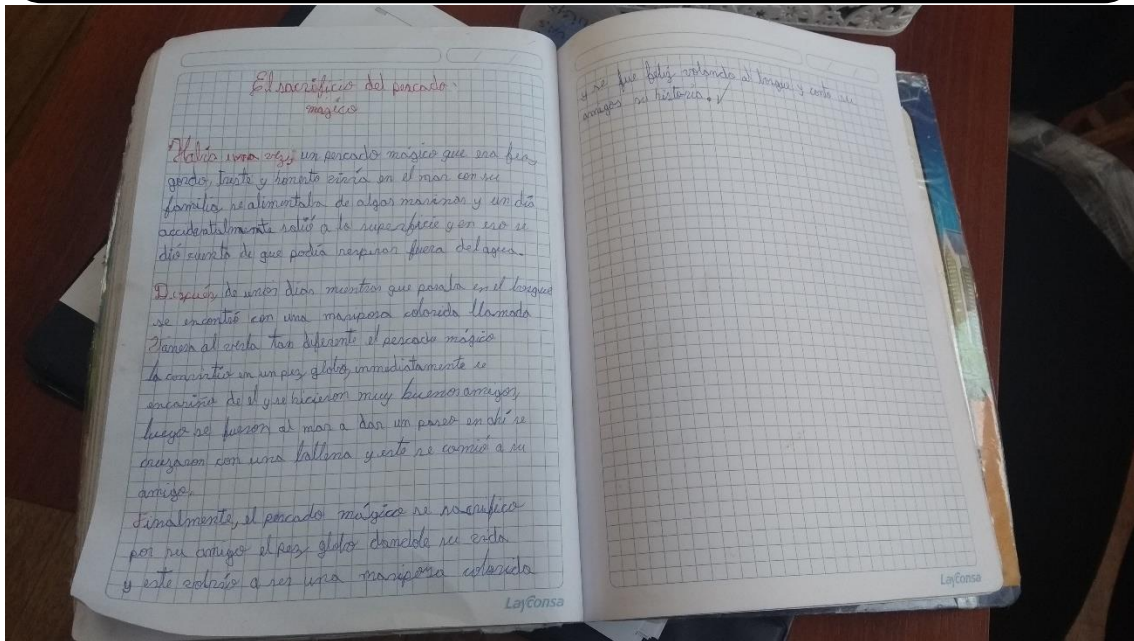 El sacrificio del pescado
mágico
Había una vez, un pescado mágico que era feo,
gordo, triste y honesto vivía en el mar con su
familia, se alimentaba de algas marinas y un día
accidentalmente salió a la superficie y en eso se
dió cuenta de que podía respirar fuera del agua.
Después de unos días mientras que pasaba en el bosque
se encontró con una mariposa colorida llamada
Vanesa al verla tan diferente el pescado mágico
la convirtio en un pez globo, inmediatamente se
encariño de el y se hicieron muy buenos amigos,
luego se fueron al mar a dar un paseo en ahí se
cruzaron con una ballena y este se comió a su
amigo.
Finalmente, el pescado mágico se sacrifico
por su amigo el pez globo dandole su vida
y este volvió a ser una mariposa colorida
LayConsa
y se fue feliz volando al bosque y conto su
amigos su historia.
LayConsa